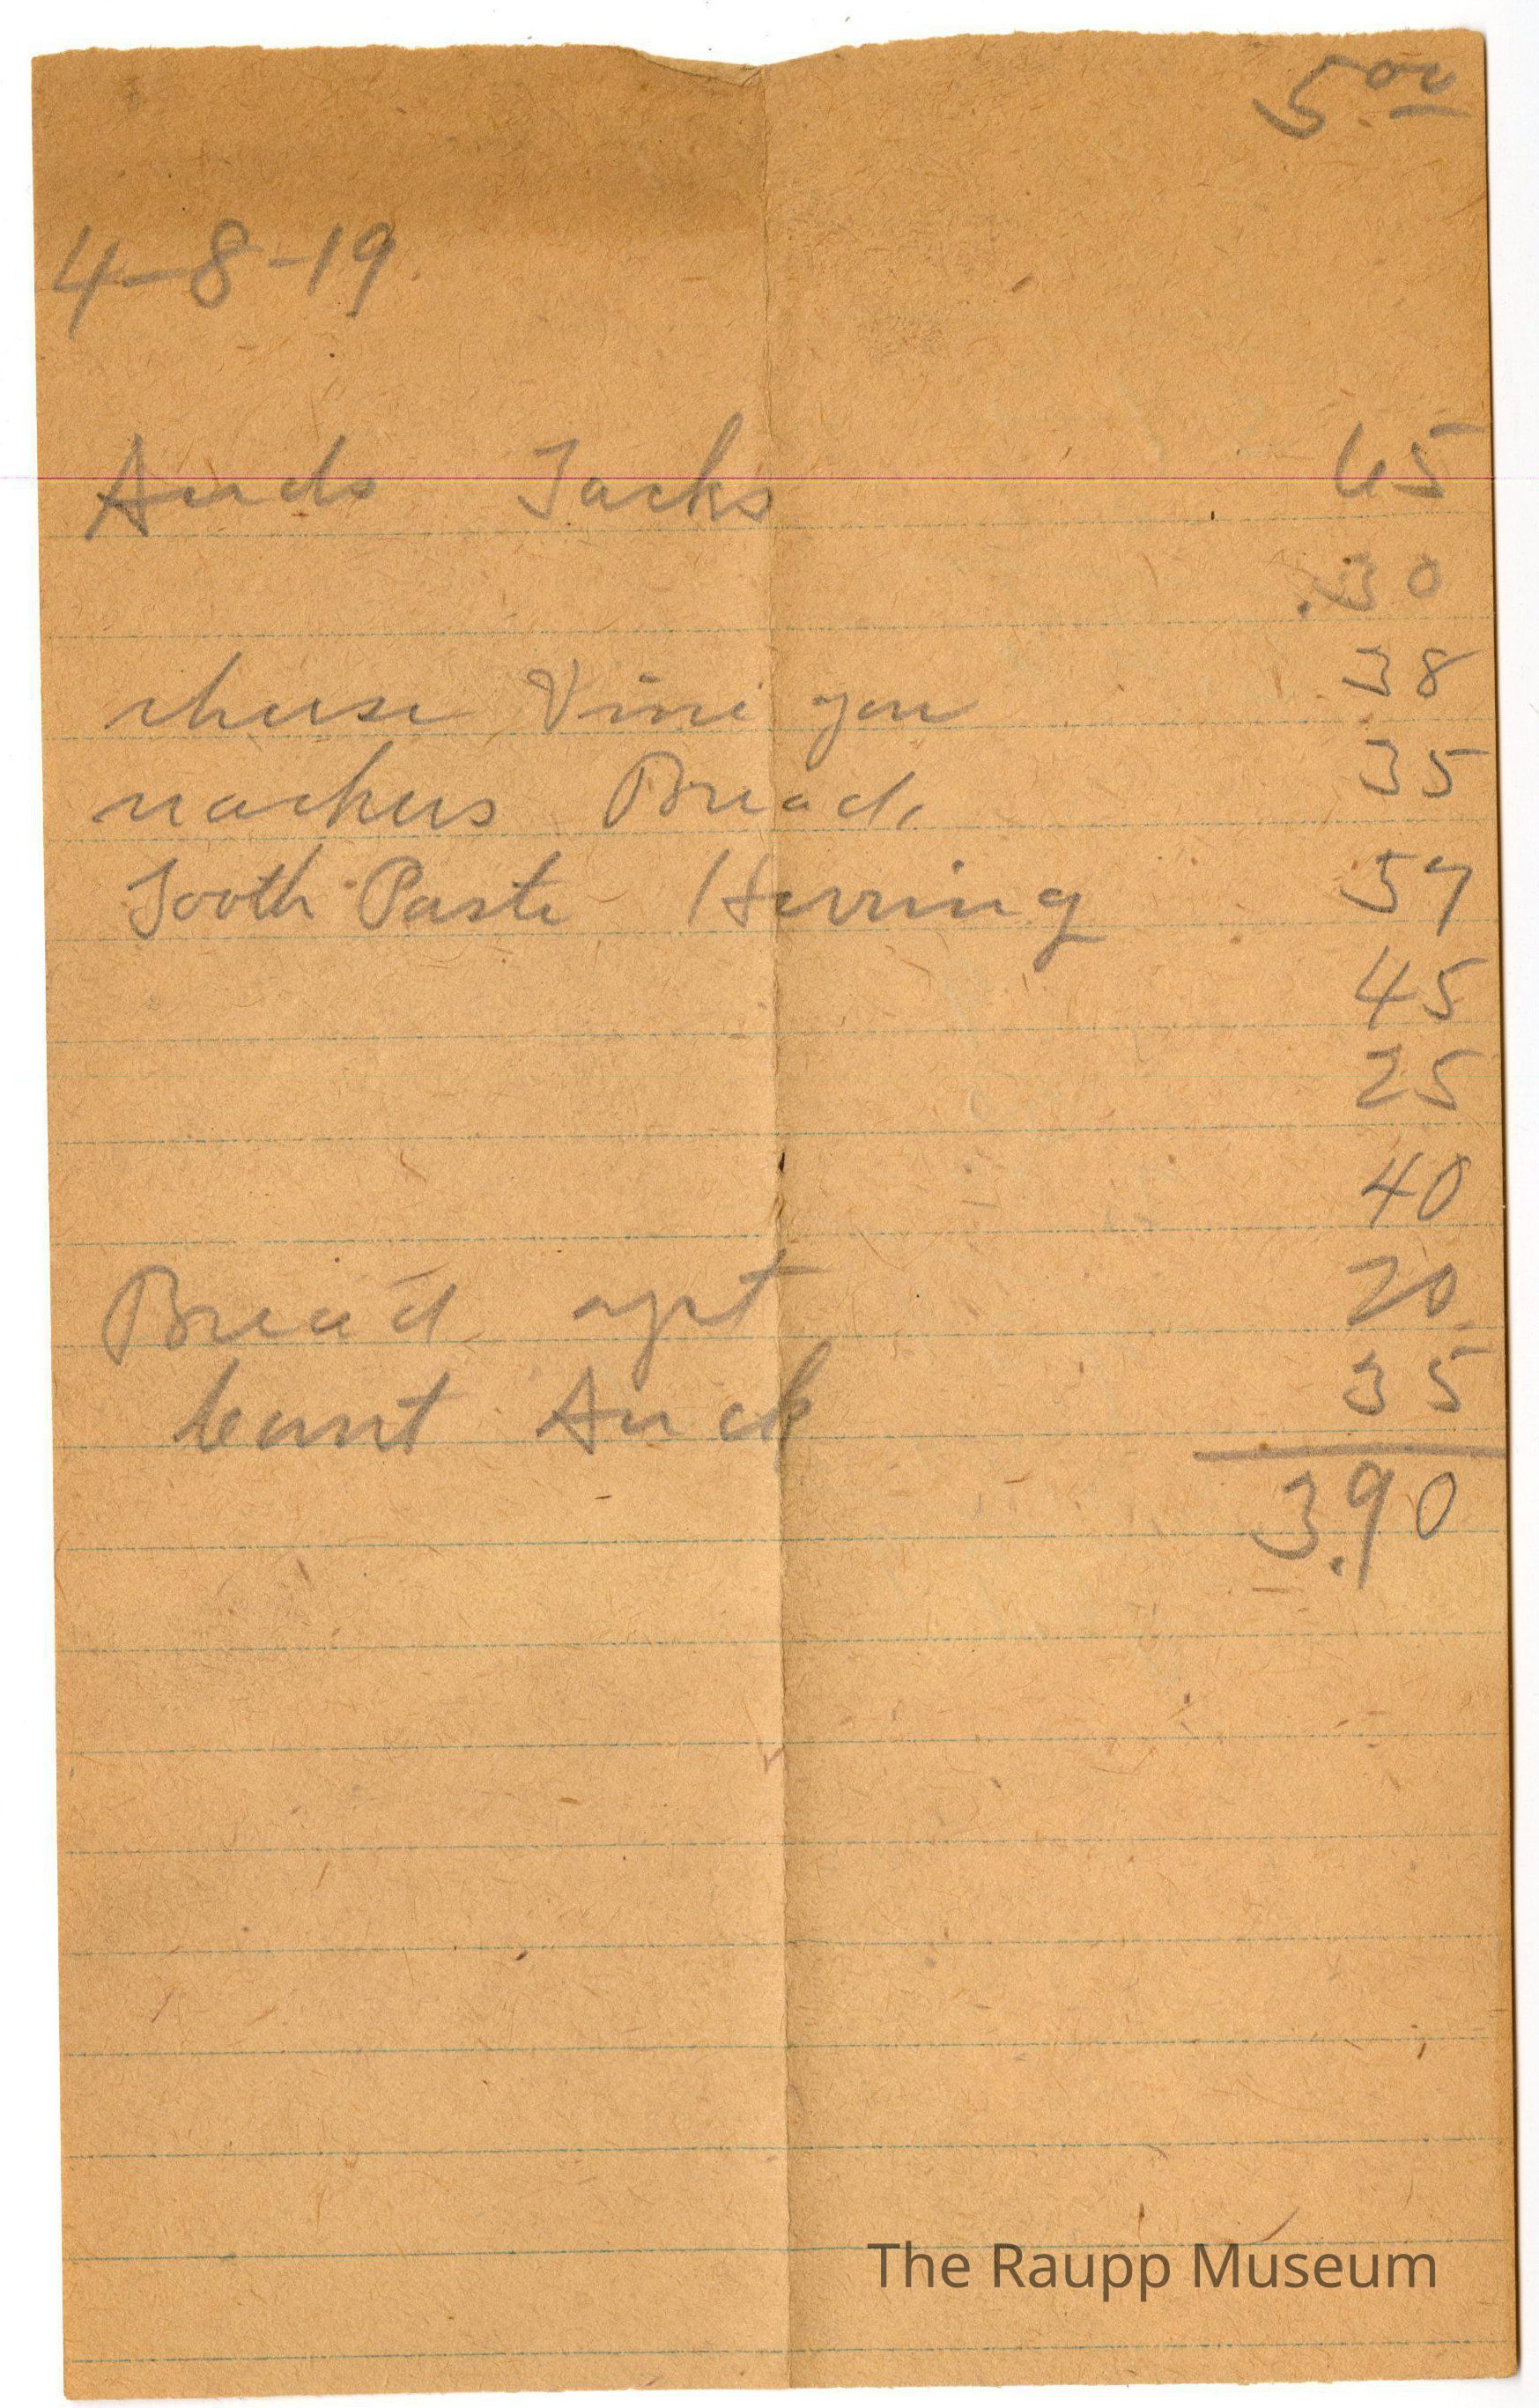 5 00
4-8-19
Tacks 65
.30
cheese Vine gar 38
crackers Bread 35
Tooth Paste Herring 57
45
25
40
Bread 20
35
3.90
The Raupp Museum